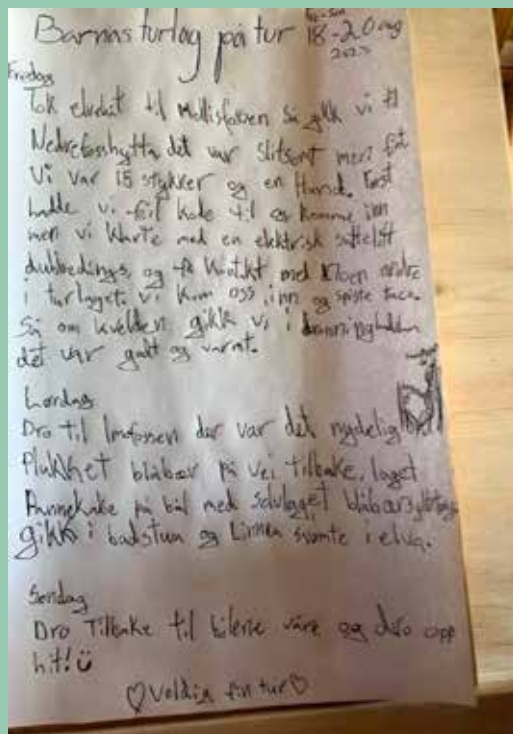 Barnas turlag på tur 18-20 aug
2023
Fredag
Tok elvebåt til Mollisfossen så gikk vi til
Nedrefosshytta det var slitsomt men fint
Vi var 15 stykker og en Hund. Først
hadde vi feil kode til å komme inn
men vi klarte med en elektrisk
og få kontakt med noen andre
i turlaget. vi kom oss inn og spiste taco.
Så om kvelden gikk vi i
det var godt og varmt.
Lørdag
Dro til Imofossen der var det nydelig
Plukket blåbær på vei tilbake, laget
Pannekake på bål med selvlaget blåbærsyltetøy
gikk i badstua og Linnea svømte i elva.
Søndag
Dro Tilbake til bilene våre og dro opp
hit! ü
♡ Veldig fin tur ♡